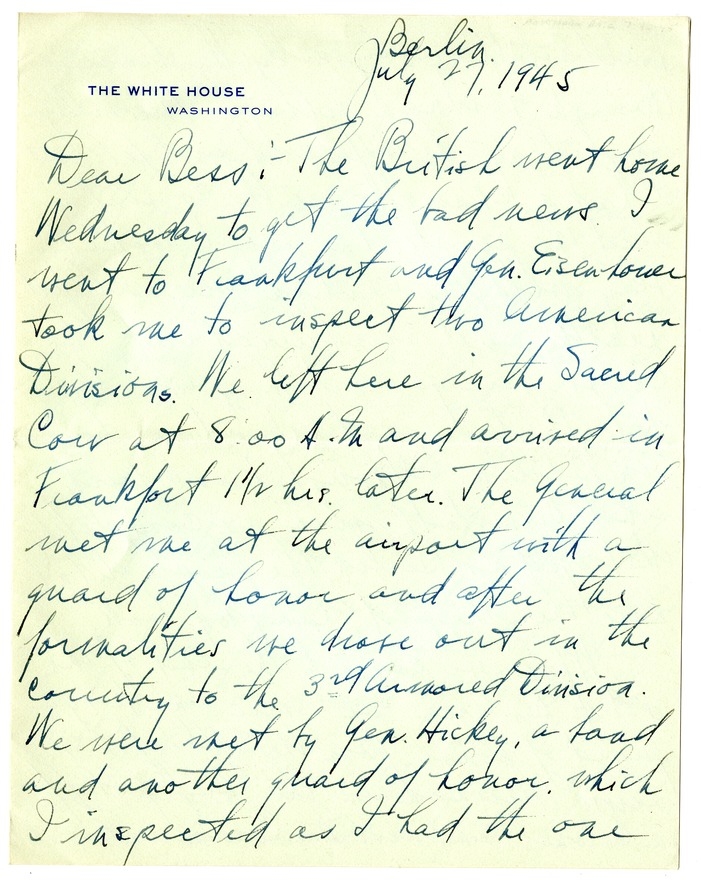 Berlin
July 27, 1945
THE WHITE HOUSE
WASHINGTON
Dear Bess:- The British went home
Wednesday to get the bad news. I
went to Frankfurt and Gen. Eisenhower
took me to inspect two American
Divisions. We left here in the Sacred
Cow at 8:00 A.M and arrived in
Frankfort 1 1/2 hrs. later. The General
met me at the airport with a
guard of honor and after the
formalities we drove out in the
country to the 3rd Armored Division.
We were met by Gen. Hickey, a band
and another guard of honor, which
I inspected as I had the one